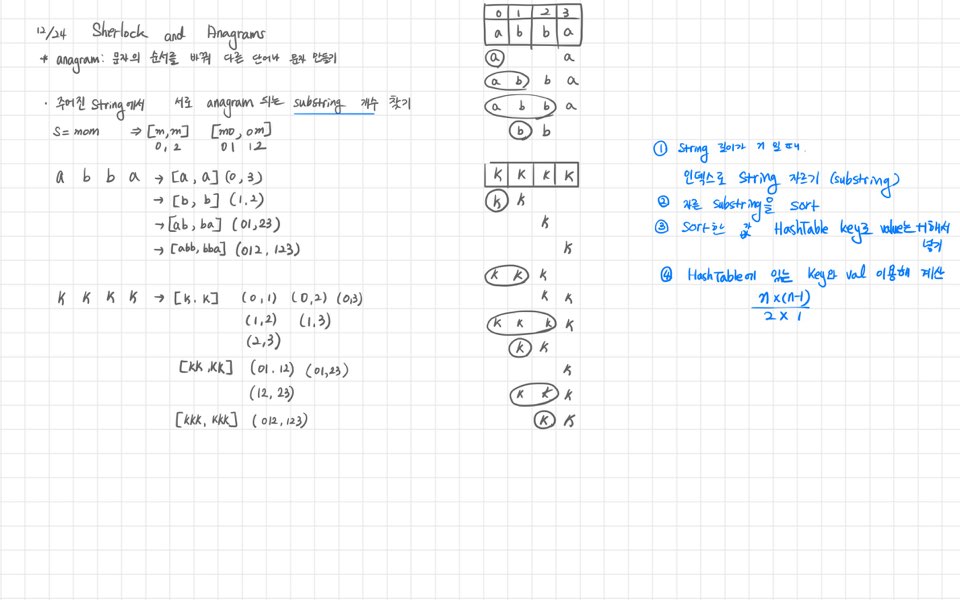 12/24 Sherlock and Anagrams
* anagram: 문자의 순서를 바꿔 다른 단어나 문자 만들기
· 주어진 String에서 서로 anagram 되는 substring 개수 찾기
S = mom ⇒ [m,m] [mo, om]
0, 2 01 12
a b b a → [a, a] (0, 3)
→ [b, b] (1, 2)
→ [ab, ba] (01, 23)
→ [abb, bba] (012, 123)
K K K K → [K, K] (0, 1) (0, 2) (0,3)
(1, 2) (1, 3)
(2, 3)
[KK, KK] (01, 12) (01, 23)
(12, 23)
[KKK, KKK] (012, 123)
0 1 2 3
a b b a
a a
a b b a
a b b a
b b
K K K K
K K
K
K
K K K
K K
K K K K
K K
K
K K K
K K
① String 길이가 일 때
인덱스로 String 자르기 (substring)
② 자른 substring을 sort
③ Sort한 값 HashTable key로 value는 +1해서
넣기
④ HashTable에 있는 Key와 val 이용해 계산
n×(n-1)
2 × 1